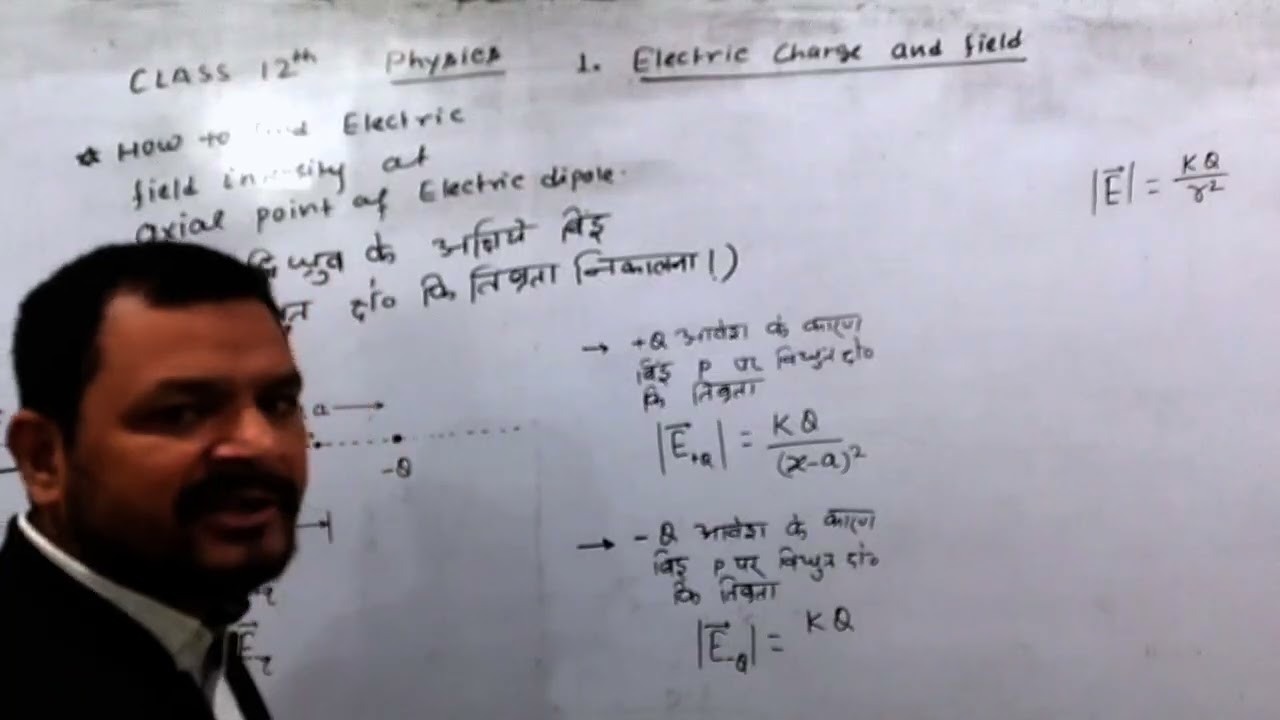 CLASS 12th Physics 1. Electric Charge and field
* How to Electric
field at
axial point of Electric dipole.
के अक्षिये बिंदु
क्षे० कि तिव्रता निकालना।)
|E| = KQ/r²
→ +Q आवेश के कारण
बिंदु P पर विधुत क्षे०
कि तिव्रता
|E+Q| = KQ/(x-a)²
a →
-Q
→ -Q आवेश के कारण
बिंदु P पर विधुत क्षे०
कि तिव्रता
|E-Q| = KQ